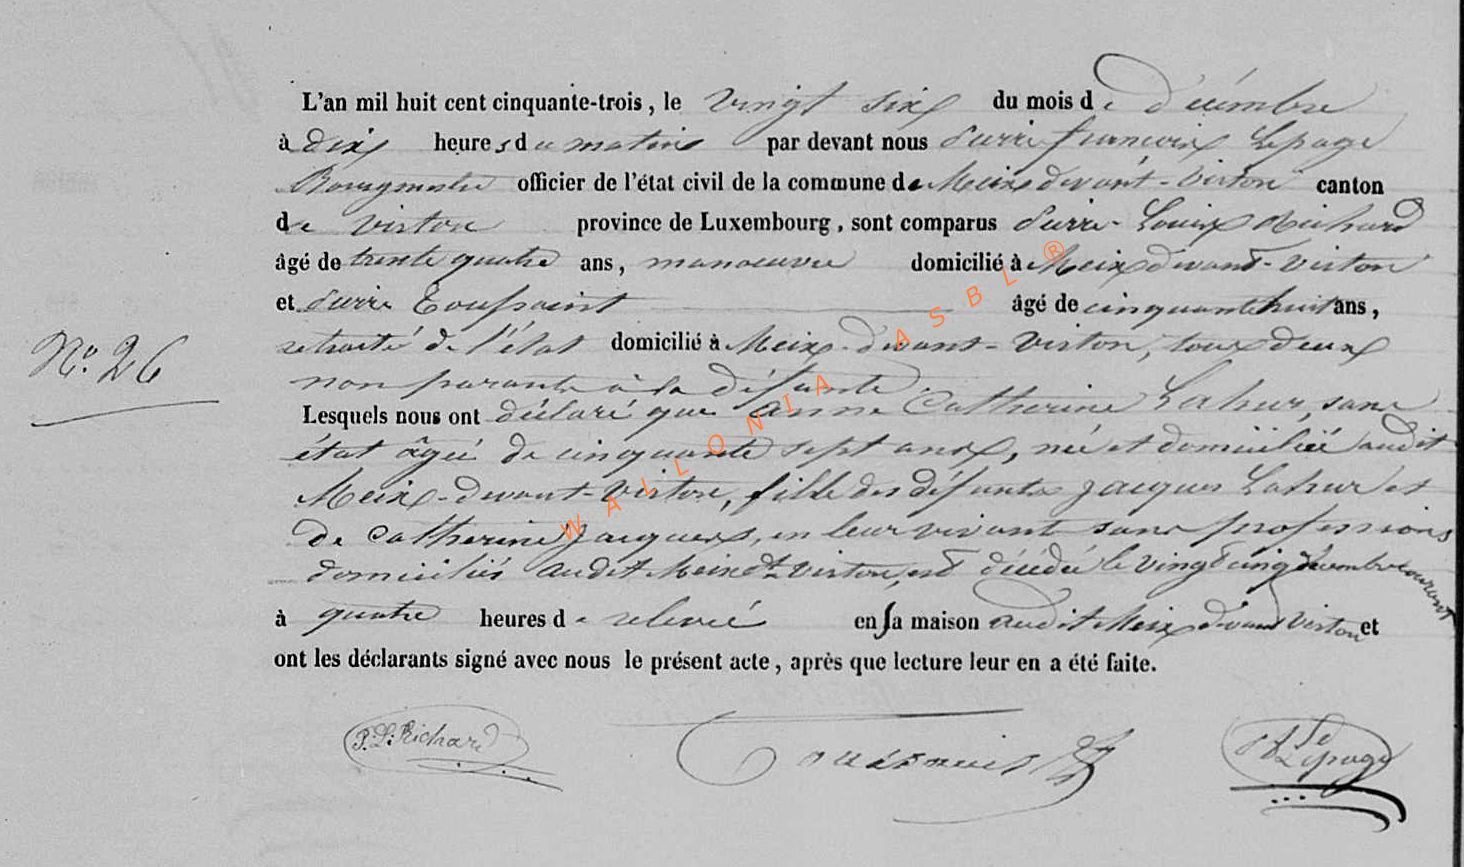 L'an mil huit cent cinquante-trois, le vingt six du mois de décembre
à dix heures du matin par devant nous Pierre françois Lepage
Bourgmestre officier de l'état civil de la commune de Meix devant-Virton canton
de Virton province de Luxembourg, sont comparus Pierre-Louis Richard
âgé de trente quatre ans, manoeuvre domicilié à Meix devant-Virton
et Pierre Toussaint âgé de cinquante huit ans,
retraité de l'état domicilié à Meix-devant-Virton, tous deux
N° 26
non parents à la défunte
Lesquels nous ont déclaré que Anne Catherine Lahur, sans
état âgée de cinquante sept ans, née et domiciliée audit
Meix-devant-Virton, fille des défunts Jacques Lahur et
de Catherine Jacques, en leur vivant sans professions
domiciliés audit Meix dt Virton, est décédée le vingt cinq décembre courant
à quatre heures de relevée en sa maison audit Meix devant Virton et
ont les déclarants signé avec nous le présent acte, après que lecture leur en a été faite.
P. L. Richard Toussaint Lepage
WALLONIA ASBL ®